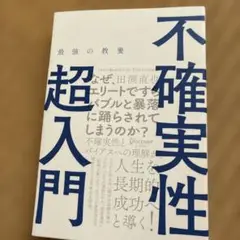 最強の教養
不確実性
超入門
なぜ、田渕直也
エリートですら
バブルと暴落
に踊らされて
しまうのか?
不確実性と
バイアスへの理解が
人生を
長期的
成功へ
と導く!